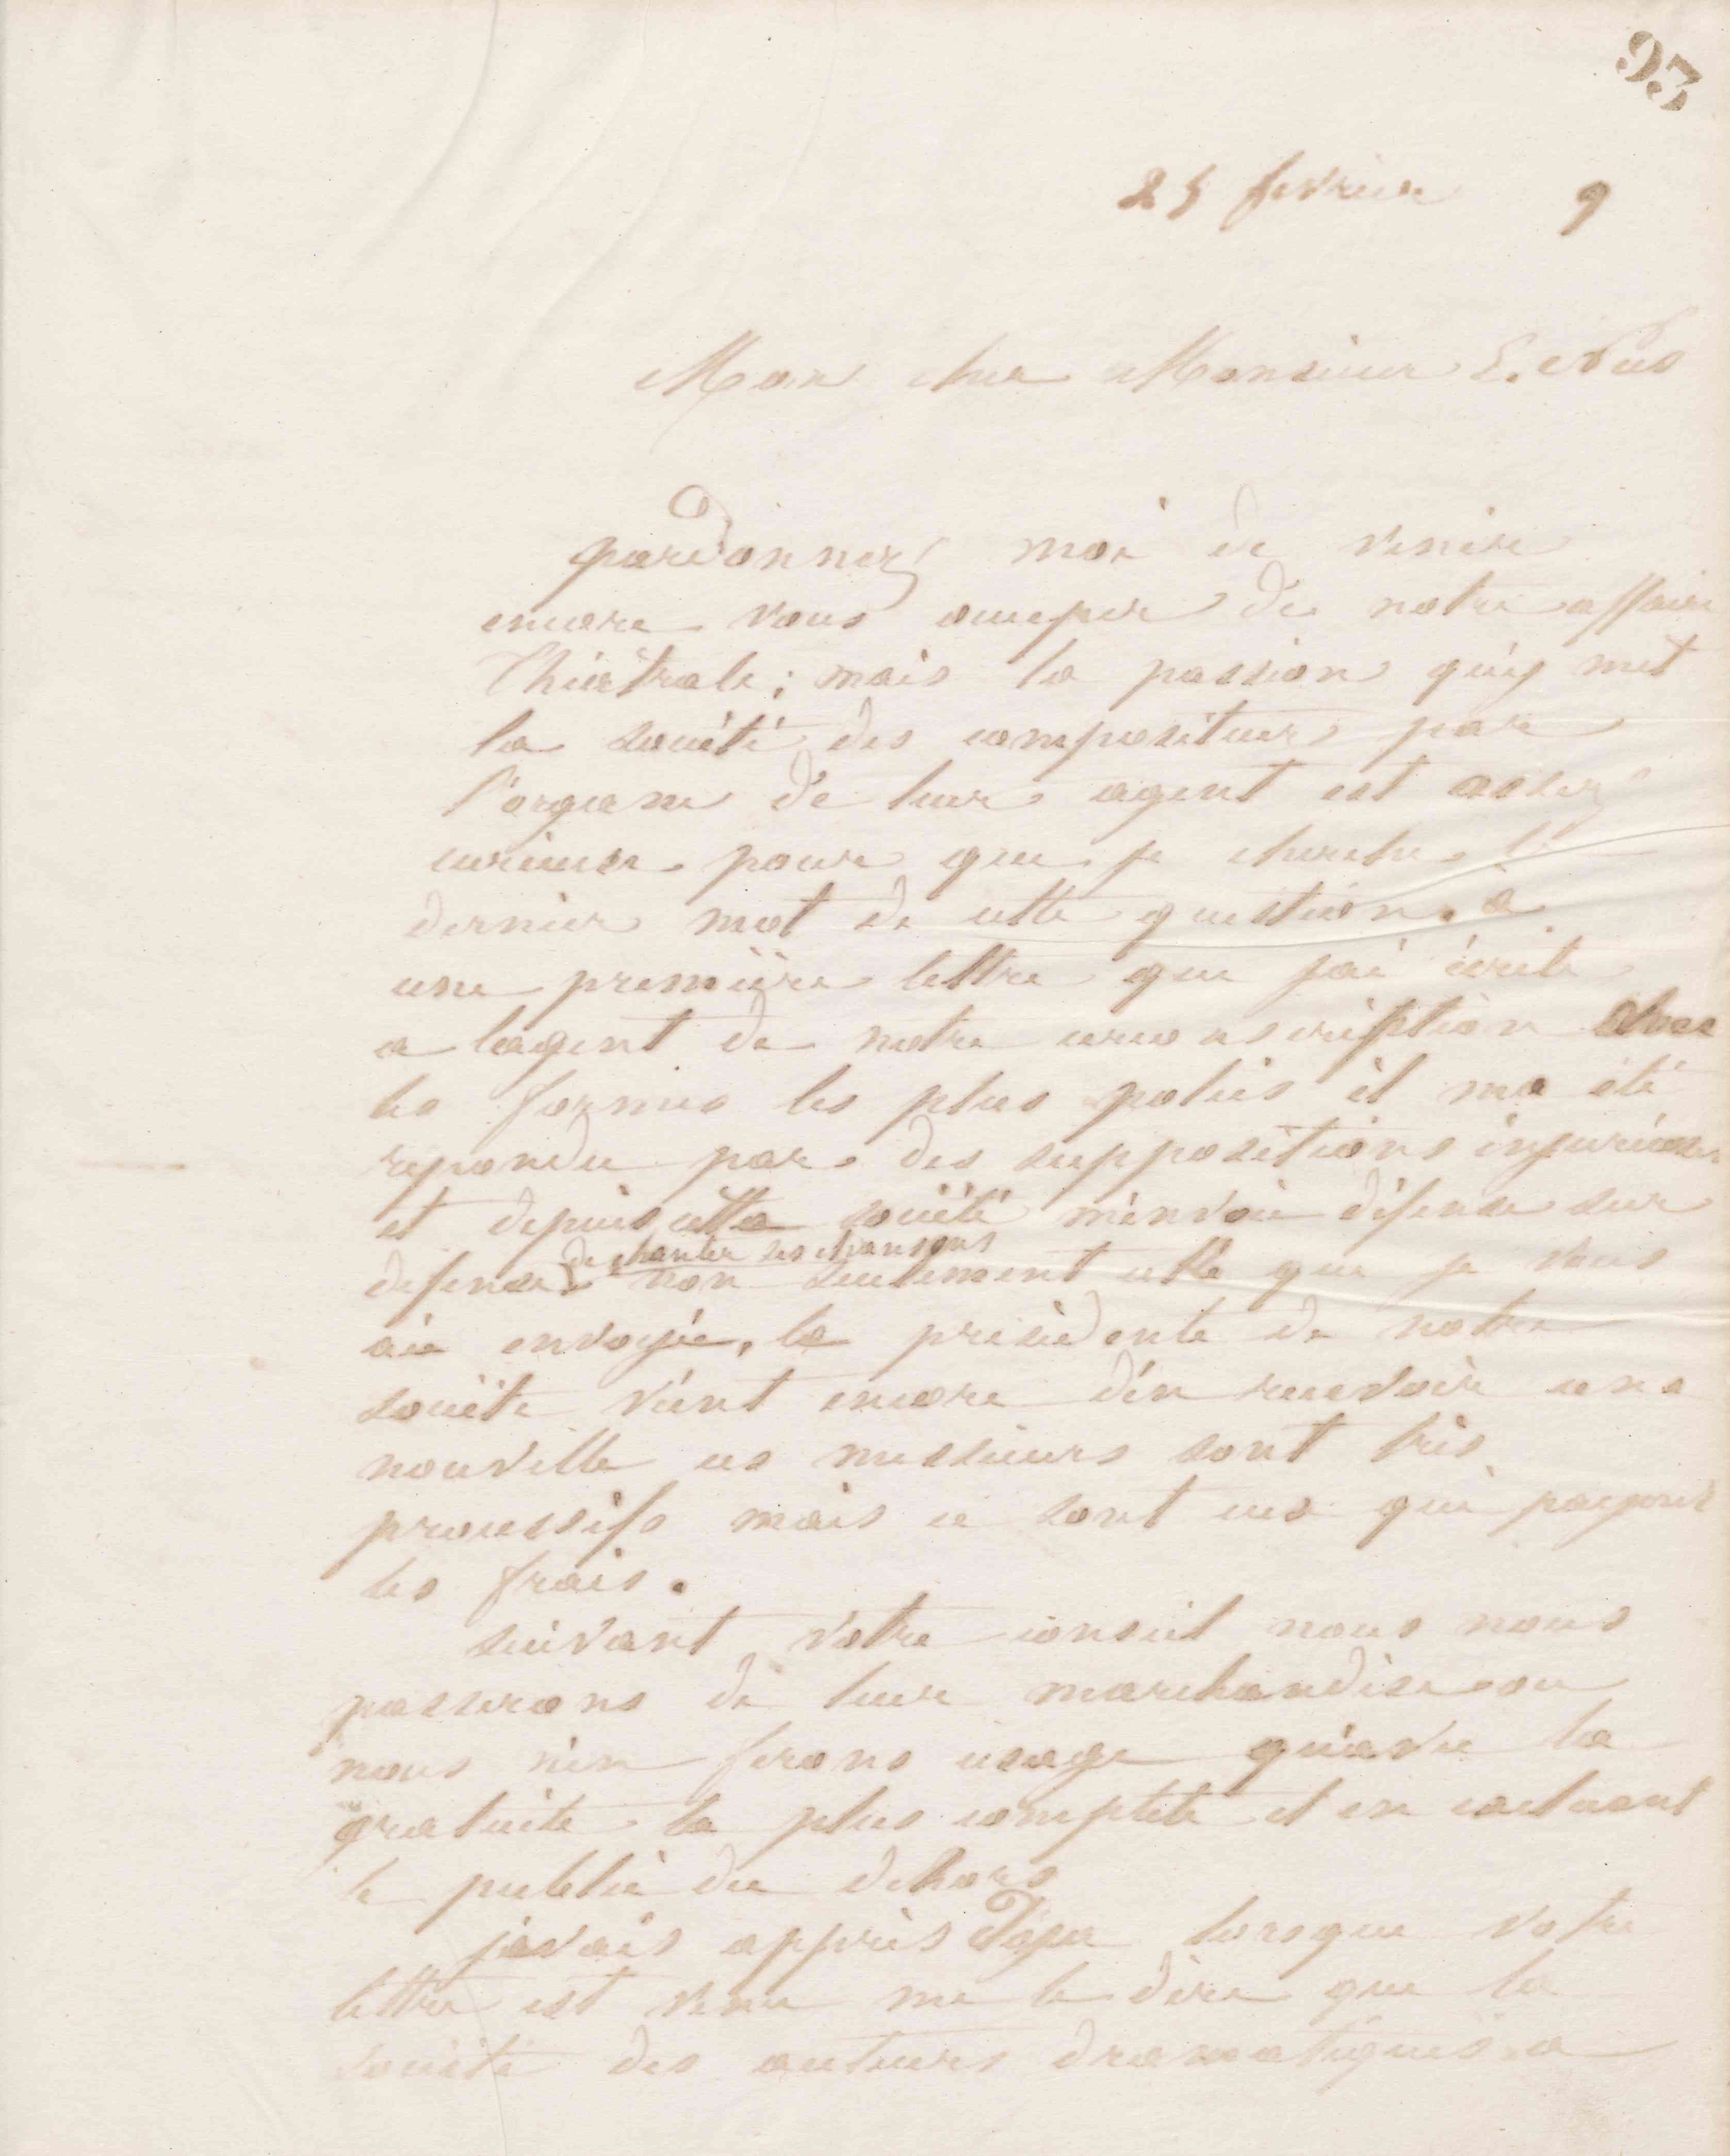 93
25 fevrier 9
Mon cher Monsieur E. Nus
pardonnez moi de venire
encore vous occuper de notre affaire
Théâtrale ; mais la passion qu'y met
la société des compositeurs par
l'organe de leur agent est assez
curieuse pour que je cherche le
dernier mot de cette question. à
une première lettre que j'ai écrite
a l'agent de notre circonscription avec
les formes les plus polies il ma été
repondu par des suppositions injurieuses
et depuis cette société m'envoie défense sur
de chanter ses chansons
defense non seulement celle que je vous
aie envoyée, la présidente de notre
société vient encore d'en recevoir une
nouvelle ces messieurs sont très
processifs mais ce sont eux qui payent
les frais.
suivant votre conseil nous nous
passerons de leur marchandise ou
nous n'en ferons usage qu'avec la
gratuité la plus complete et en excluant
le public du dehors
javais appris déja lorsque votre
lettre est venu me le dire que la
société des auteurs dramatiques a